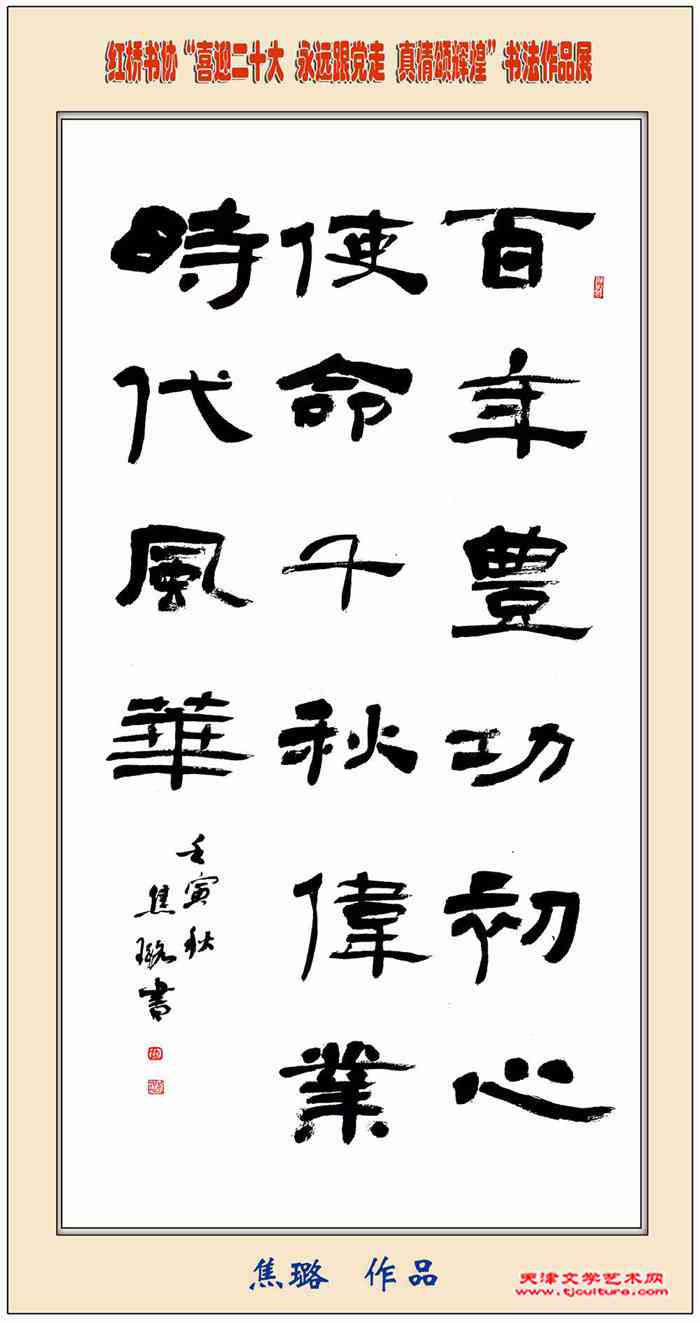 红桥书协“喜迎二十大 永远跟党走 真情颂辉煌”书法作品展
百年豐功初心
使命千秋偉業
時代風華
壬寅秋
焦璐書
焦璐 作品
天津文学艺术网
www.tjculture.com